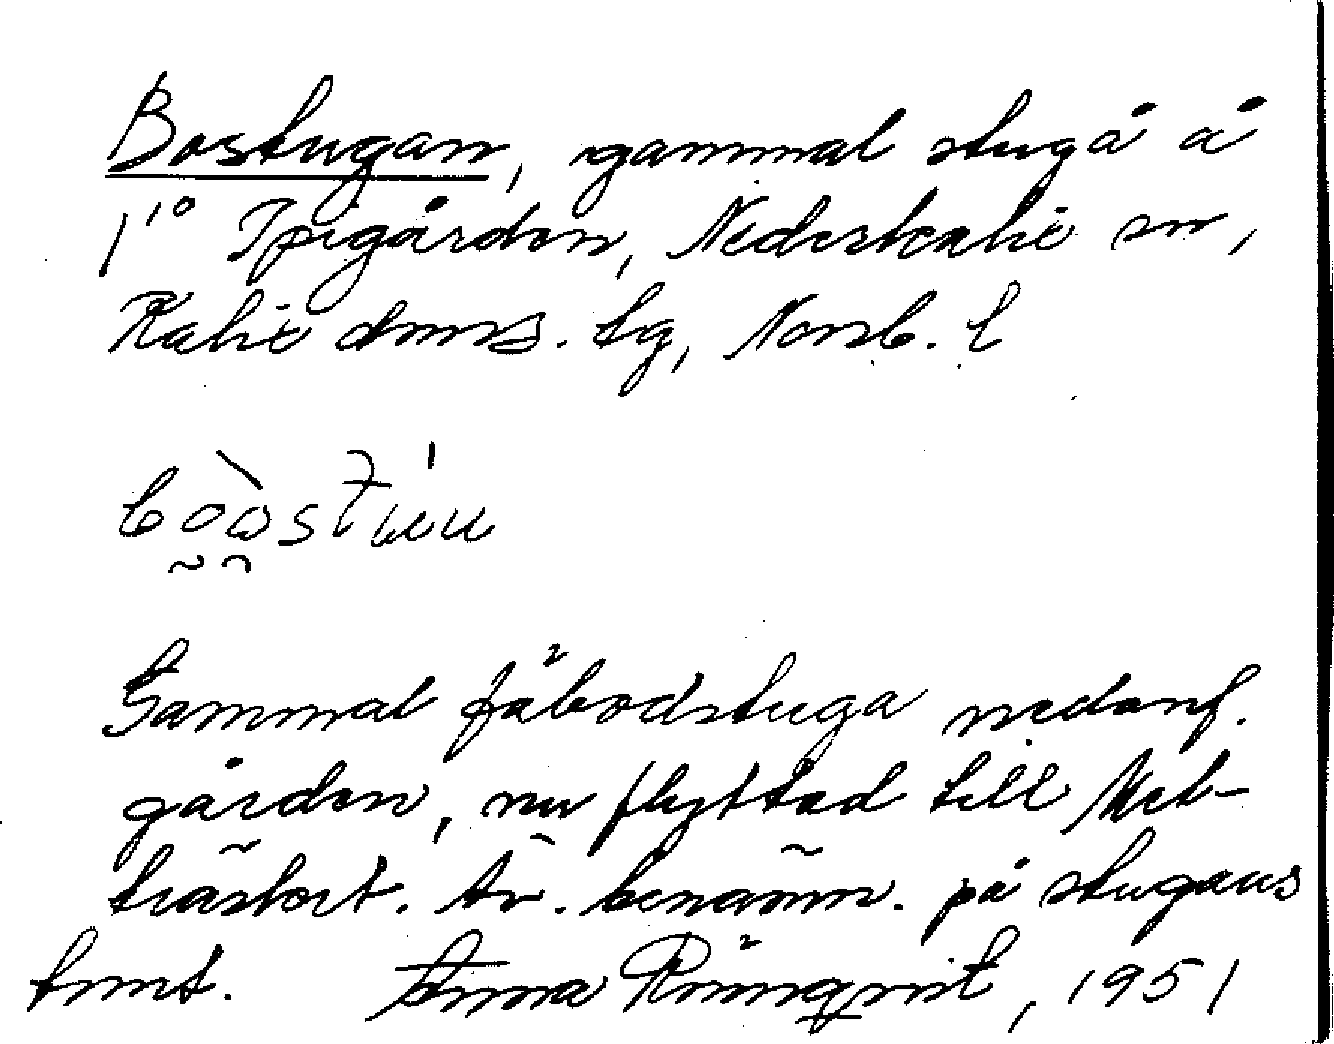 Bostugan, gammal stuga å
1¹⁰ Ipigården, Nederkalix sn,
Kalix dms. tg, Norrb. l
Gammal fäbodstuga nedanf.
gården, nu flyttad till Vet-
träsket. Äv. benämn. på stugans
tomt. Anna Rönnqvist, 1951